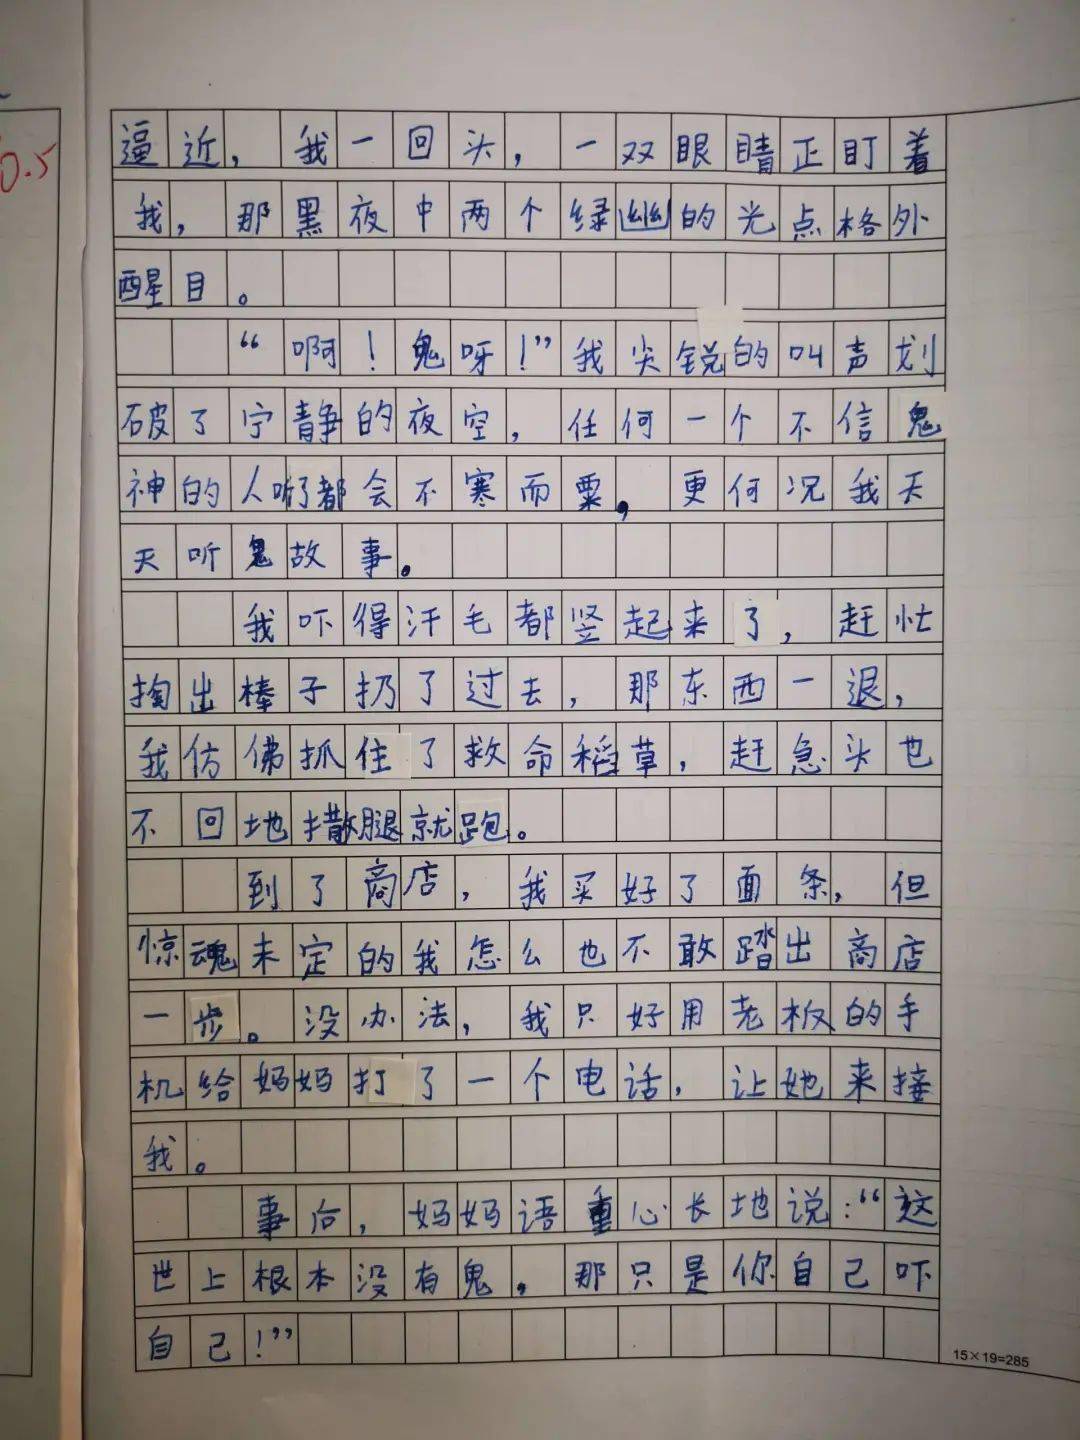 0.5
逼近，我一回头，一双眼睛正盯着
我，那黑夜中两个绿幽幽的光点格外
醒目。
“啊！鬼呀！”我尖锐的叫声划
破了宁静的夜空，任何一个不信鬼
神的人听了都会不寒而粟，更何况我天
天听鬼故事。
我吓得汗毛都竖起来了，赶忙
掏出棒子扔了过去，那东西一退，
我仿佛抓住了救命稻草，赶急头也
不回地撒腿就跑。
到了商店，我买好了面条，但
惊魂未定的我怎么也不敢踏出商店
一步。没办法，我只好用老板的手
机给妈妈打了一个电话，让她来接
我。
事后，妈妈语重心长地说：“这
世上根本没有鬼，那只是你自己吓
自己！”
15×19=285